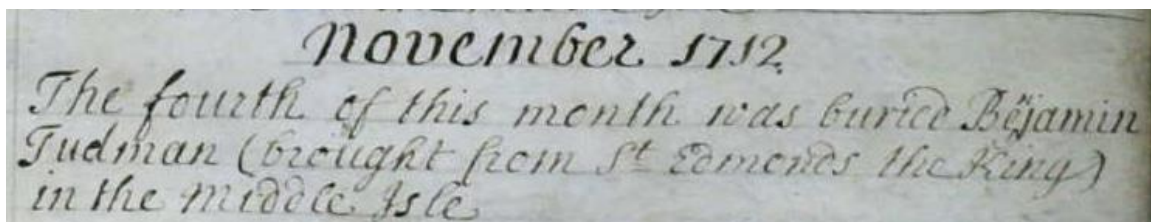 November 1712
The fourth of this month was buried Bējamin
Tudman (brought from St Edmonds the King)
in the Middle Isle